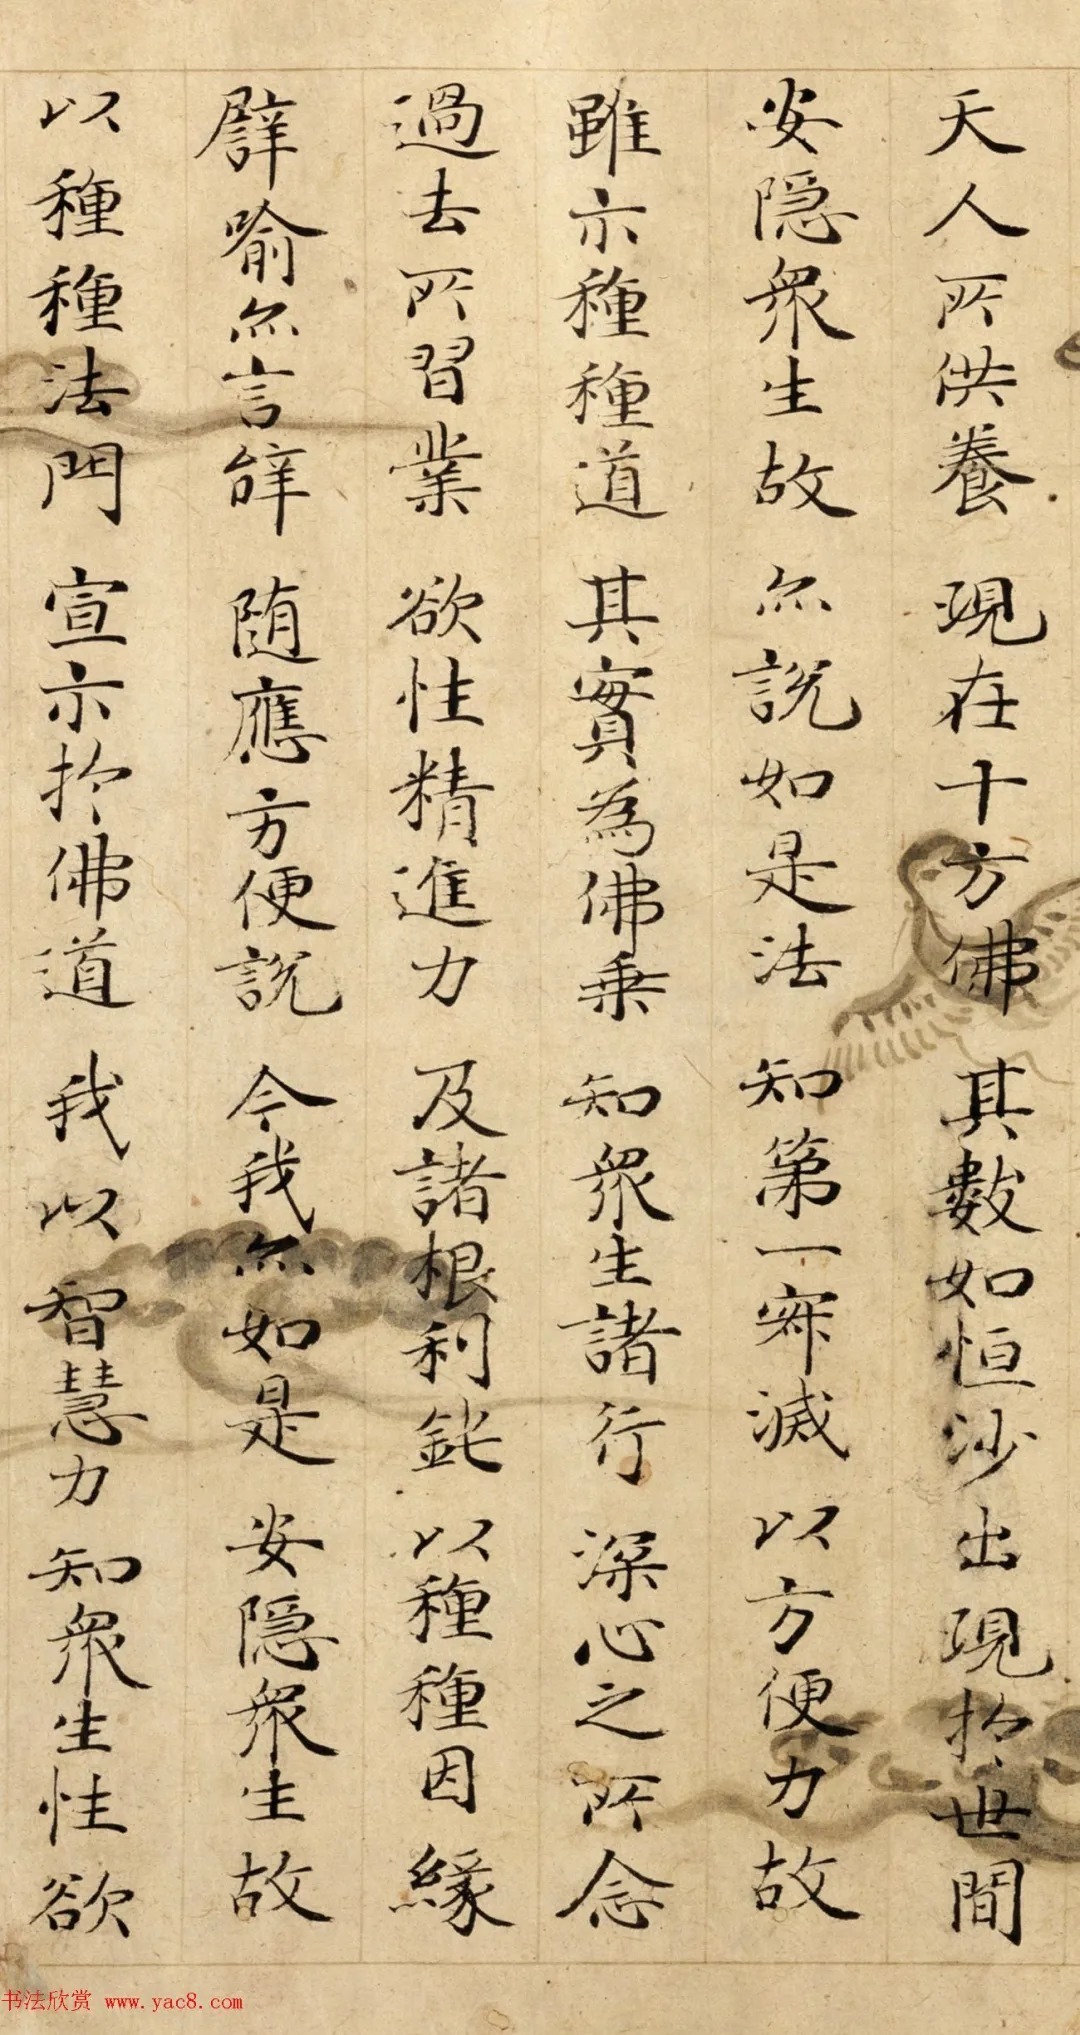 天人所供養 現在十方佛 其數如恒沙 出現於世間
安隱衆生故 亦說如是法 知第一寂滅 以方便力故
雖示種種道 其實為佛乗 知衆生諸行 深心之所念
過去所習業 欲性精進力 及諸根利鈍 以種種因緣
譬喻亦言辭 随應方便說 今我亦如是 安隱衆生故
以種種法門 宣示於佛道 我以智慧力 知衆生性欲
书法欣赏 www.yac8.com